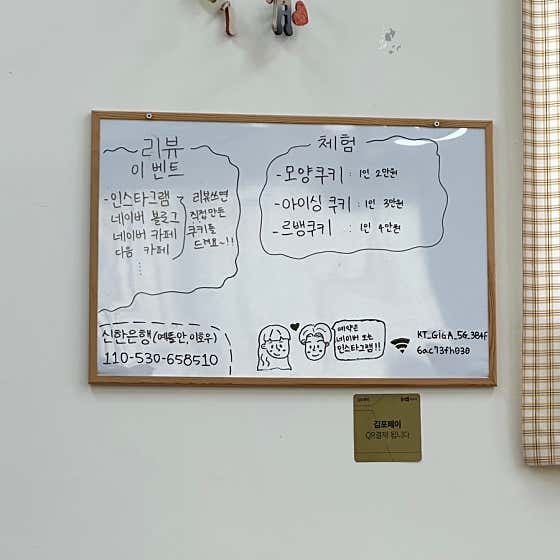 리뷰
이벤트
- 인스타그램
네이버 블로그
네이버 카페
다음 카페
리뷰쓰면
직접만든
쿠키를
드려요~!!
체험
- 모양쿠키 : 1인 2만원
- 아이싱 쿠키 : 1인 3만원
- 르뱅쿠키 : 1인 4만원
신한은행 (예틀안 이호우)
110-530-658510
예약은
네이버 또는
인스타그램!!
KT_GiGA_5G_3B4F
6ac73fh030
김포페이
QR결제 됩니다